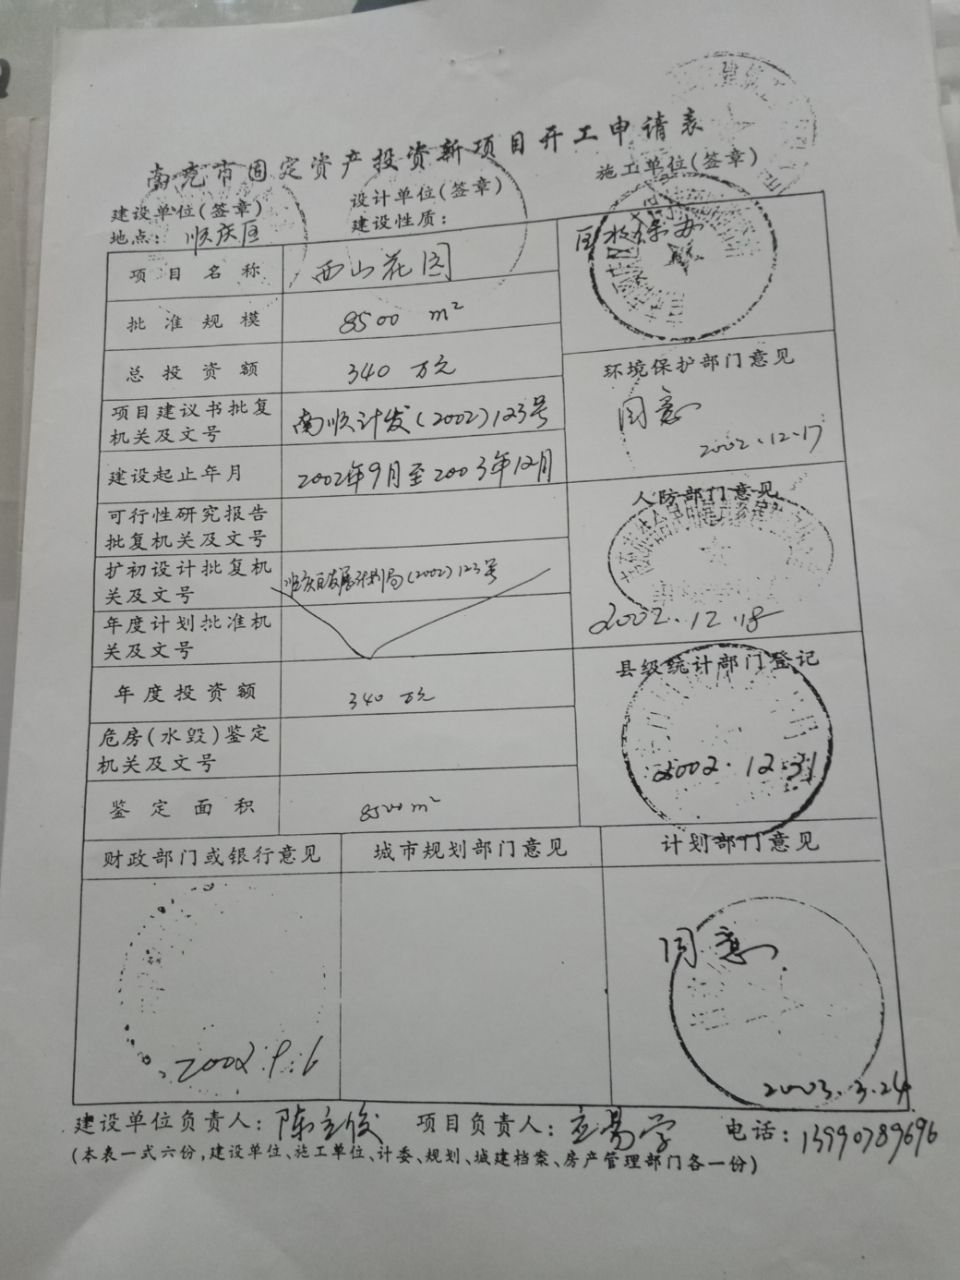 南充市固定资产投资新项目开工申请表
建设单位(签章)
设计单位(签章)
施工单位(签章)
地点： 顺庆区
建设性质：
项目名称 西山花园
批准规模 8500 m²
总投资额 340 万元
项目建议书批复
机关及文号
南顺计发(2002)123号
建设起止年月 2002年9月至2003年12月
可行性研究报告
批复机关及文号
扩初设计批复机
关及文号
顺庆区发展计划局(2002)123号
年度计划批准机
关及文号
年度投资额 340 万元
危房(水毁)鉴定
机关及文号
鉴定面积 8500m²
环境保护部门意见
同意
2002.12.17
人防部门意见
2002.12.18
县级统计部门登记
2002.12.31
财政部门或银行意见
2002.9.6
城市规划部门意见
计划部门意见
同意
2003.3.24
建设单位负责人： 项目负责人： 电话：13990789696
(本表一式六份,建设单位、施工单位、计委、规划、城建档案、房产管理部门各一份)